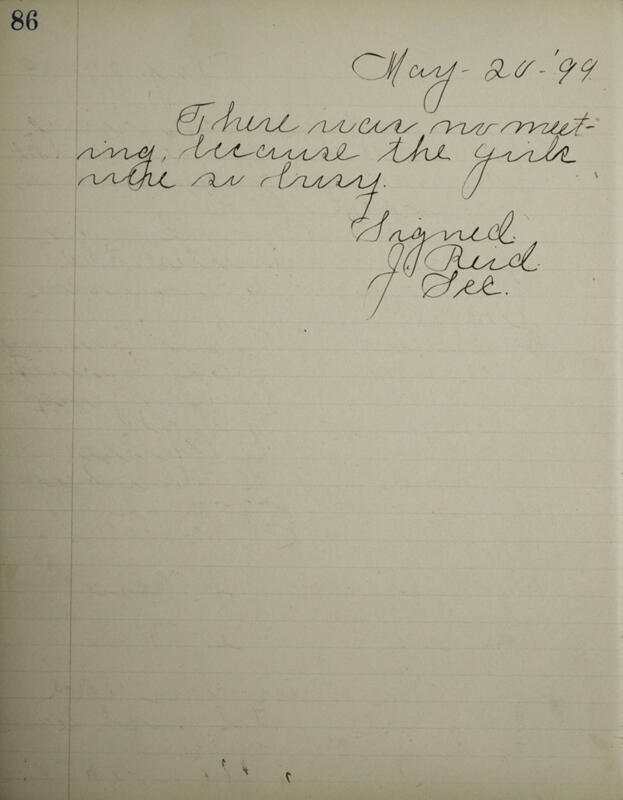 86
May - 20 - '99
There was no meet-
ing, because the girls
were so busy.
Signed.
J. Reid.
Sec.